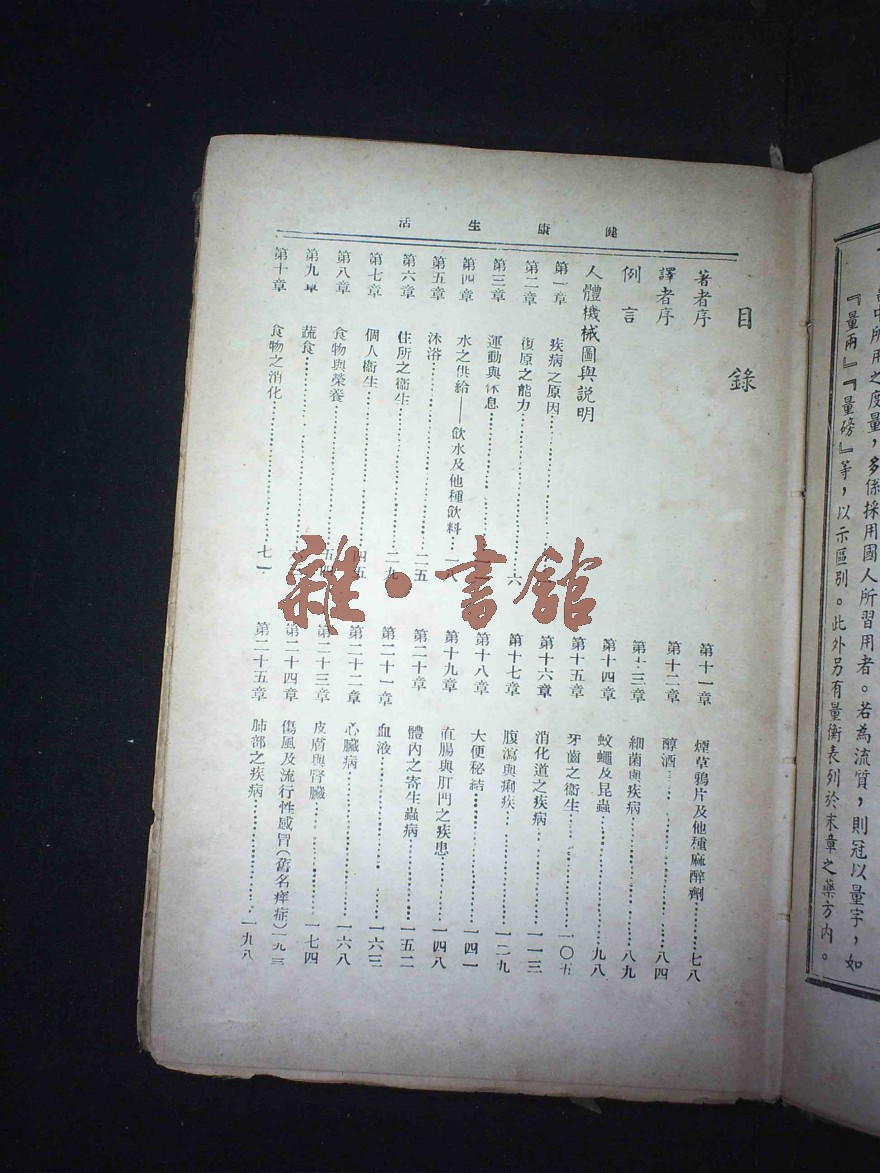 中所用之度量，多係採用國人所習用者。若為流質，則冠以量字，如
『量兩』『量磅』等，以示區別。此外另有量衡表列於末章之藥方內。
健康生活
目錄
著者序
譯者序
例言
人體機械圖與說明
第一章 疾病之原因
第二章 復原之能力 六
第三章 運動與休息
第四章 水之供給——飲水及他種飲料 一八
第五章 沐浴 二五
第六章 住所之衞生 二九
第七章 個人衞生 四五
第八章 食物與榮養 五四
第九章 蔬食
第十章 食物之消化 七一
第十一章 煙草鴉片及他種麻醉劑 七八
第十二章 醇酒 八四
第十三章 細菌與疾病 八九
第十四章 蚊蠅及昆蟲 九八
第十五章 牙齒之衞生 一〇五
第十六章 消化道之疾病 一一三
第十七章 腹瀉與痢疾 一二九
第十八章 大便秘結 一四一
第十九章 直腸與肛門之疾患 一四八
第二十章 體內之寄生蟲病 一五二
第二十一章 血液 一六三
第二十二章 心臟病 一六八
第二十三章 皮膚與腎臟 一七四
第二十四章 傷風及流行性感冒（舊名痒症） 一九三
第二十五章 肺部之疾病 一九八
雜·書館